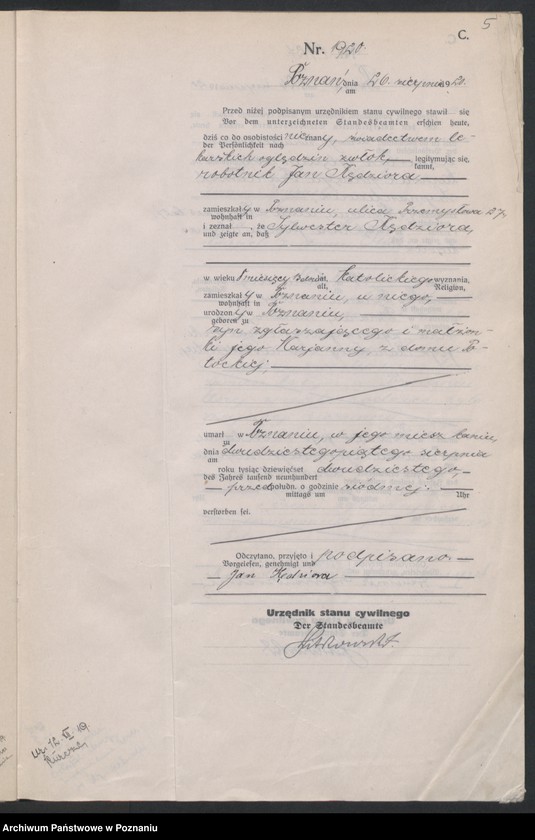 5
C.
Nr. 1920.
Poznań, dnia 26. sierpnia 1920.
am
Przed niżej podpisanym urzędnikiem stanu cywilnego stawił się
Vor dem unterzeichneten Standesbeamten erschien heute,
dziś co do osobistości nieznany, świadectwem le-
der Persönlichkeit nach
karskich oględzin zwłok, legitymując się,
kannt,
robotnik Jan Kędziora
zamieszkały w Poznaniu, ulica Przemysłowa 27,
wohnhaft in
i zeznał, że Sylwester Kędziora,
und zeigte an, daß
w wieku miesięcy lat, Katolickiego wyznania,
alt, Religion,
zamieszkały w Poznaniu, u niego,
wohnhaft in
urodzony w Poznaniu,
geboren zu
syn zgłaszającego i małżon-
ki jego Marjanny, z domu Po-
tockiej
umarł w Poznaniu, w jego mieszkaniu,
zu
dnia dwudziestegopiątego sierpnia
am
roku tysiąc dziewięćset dwudziestego,
des Jahres tausend neunhundert
przed połudn. o godzinie siódmej.
mittags um Uhr
verstorben sei.
Odczytano, przyjęto i podpisano
Vorgelesen, genehmigt und
Jan Kędziora
Urzędnik stanu cywilnego
Der Standesbeamte
ur. 12. 19.
Archiwum Państwowe w Poznaniu